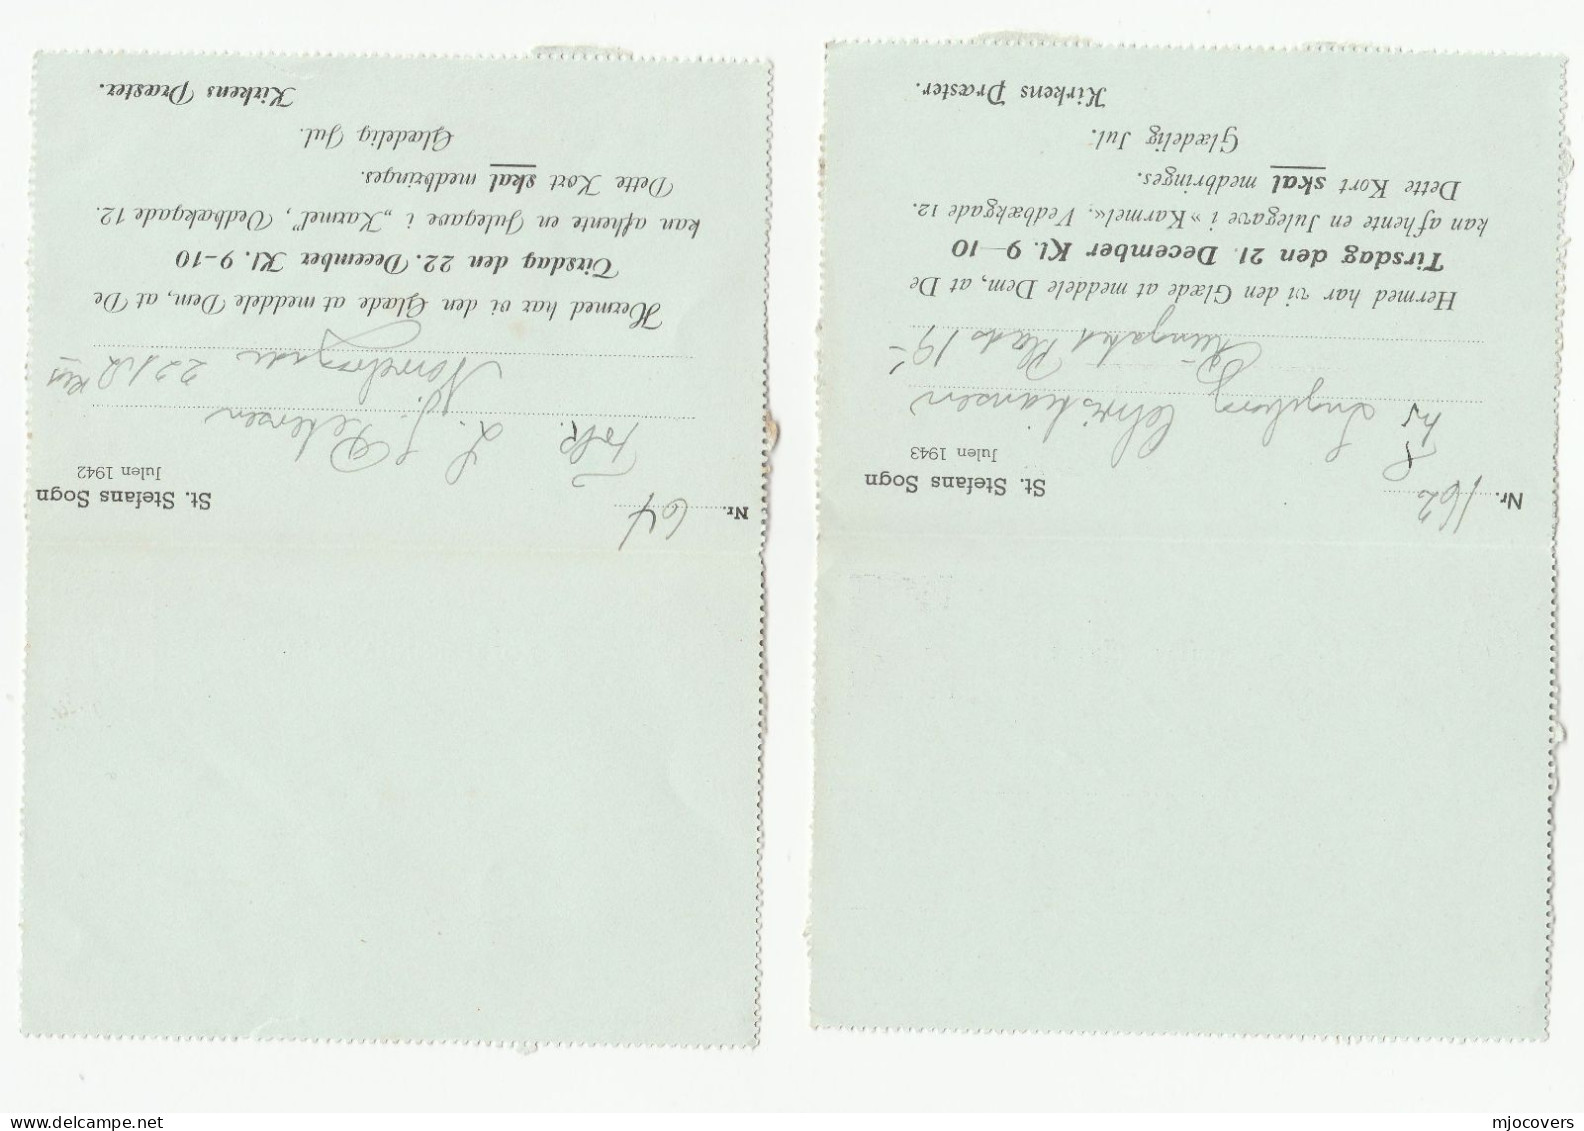 Nr. 64
St. Stefans Sogn
Julen 1942
Frk. L. J. Petersen
Nørrebrogade 221
Hermed har vi den Glæde at meddele Dem, at De
Tirsdag den 22. December Kl. 9-10
kan afhente en Julegave i „Karmel", Vedbækgade 12.
Dette Kort skal medbringes.
Glædelig Jul.
Kirkens Præster.
Nr. 162
St. Stefans Sogn
Julen 1943
Ingeborg Christiansen
Plads 19
Hermed har vi den Glæde at meddele Dem, at De
Tirsdag den 21. December Kl. 9—10
kan afhente en Julegave i »Karmel«. Vedbækgade 12.
Dette Kort skal medbringes.
Glædelig Jul.
Kirkens Præster.
delcampe.net
mjocovers